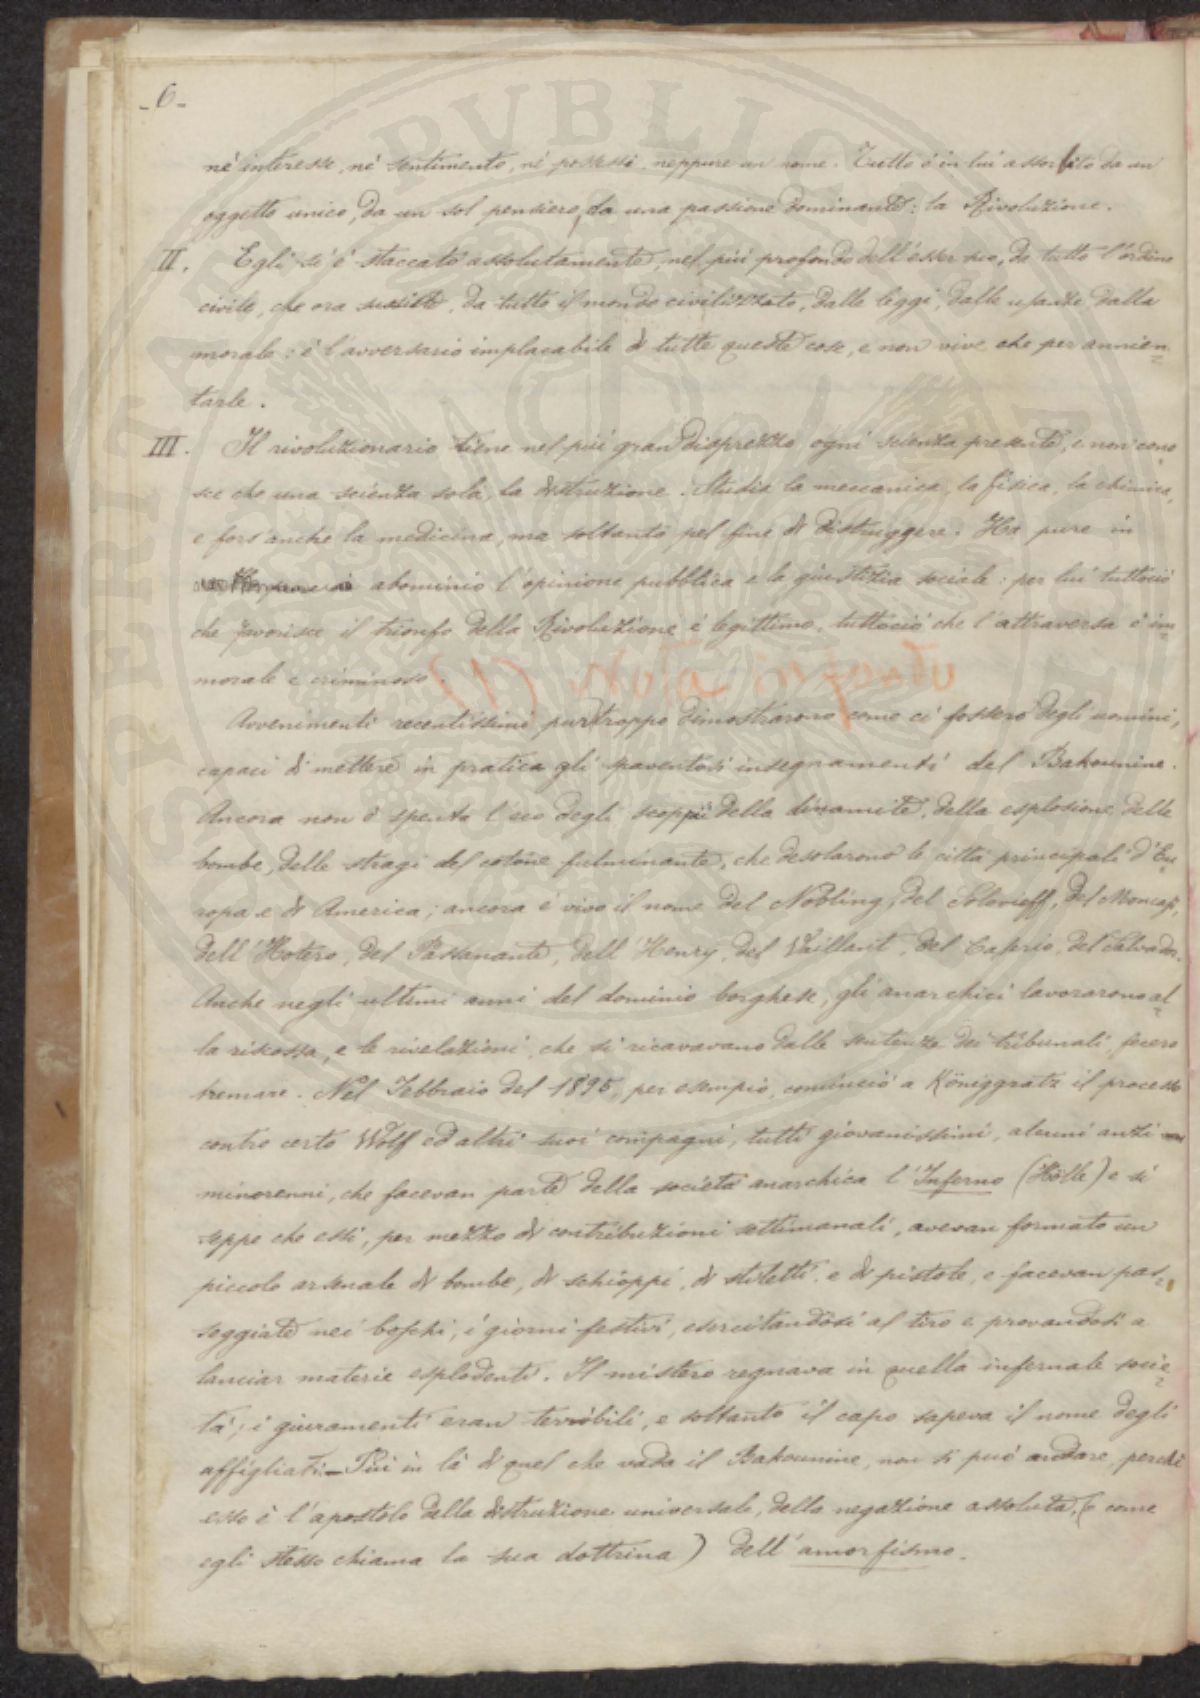 -6-
nè interesse, nè sentimento, nè possessi, neppure un nome. Tutto è in lui assorbito da un
oggetto unico, da un sol pensiero, da una passione dominante: la Rivoluzione.
II. Egli si è staccato assolutamente, nel più profondo dell'esser suo, da tutto l'ordine
civile, che ora sussiste, da tutto il mondo civilizzato, dalle leggi, dalle usanze dalla
morale: è l'avversario implacabile di tutte queste cose, e non vive che per annien=
tarle.
III. Il rivoluzionario tiene nel più gran disprezzo ogni scienza presente, e non cono=
sce che una scienza sola, la distruzione. Studia la meccanica, la fisica, la chimica,
e fors'anche la medicina, ma soltanto pel fine di distruggere. Ha pure in
abominio l'opinione pubblica e la giustizia sociale: per lui tuttociò
che favorisce il trionfo della Rivoluzione è legittimo, tuttociò che l'attraversa è im=
morale e criminoso.
(1) Nota in fondo
Avvenimenti recentissimi purtroppo dimostrarono come ci fossero degli uomini,
capaci di mettere in pratica gli spaventosi insegnamenti del Bakounine.
Ancora non è spenta l'eco degli scoppi della dinamite, della esplosione delle
bombe, delle stragi del cotone fulminante, che desolarono le città principali d'Eu=
ropa e di America; ancora è vivo il nome del Nobling, del Solovieff, del Moncasi,
dell'Hotero, del Passanante, dell'Henry, del Vaillant, del Caserio, del Salvador.
Anche negli ultimi anni del dominio borghese, gli anarchici lavorarono al=
la riscossa, e le rivelazioni, che si ricavavano dalle sentenze dei tribunali, fecero
tremare. Nel Febbraio del 1895, per esempio, cominciò a Königgratz il processo
contro certo Wolf ed altri suoi compagni, tutti giovanissimi, alcuni anzi
minorenni, che facevan parte della società anarchica l'Inferno (Hölle) e si
seppe che essi, per mezzo di contribuzioni settimanali, avevan formato un
piccolo arsenale di bombe, di schioppi, di stiletti, e di pistole, e facevan pas=
seggiate nei boschi, i giorni festivi, esercitandosi al tiro e provandosi a
lanciar materie esplodenti. Il mistero regnava in quella infernale socie=
tà; i giuramenti eran terribili, e soltanto il capo sapeva il nome degli
affigliati. — Più in là di quel che vada il Bakounine, non si può andare, perchè
esso è l'apostolo della distruzione universale, della negazione assoluta, (o come
egli stesso chiama la sua dottrina) dell'amorfismo.